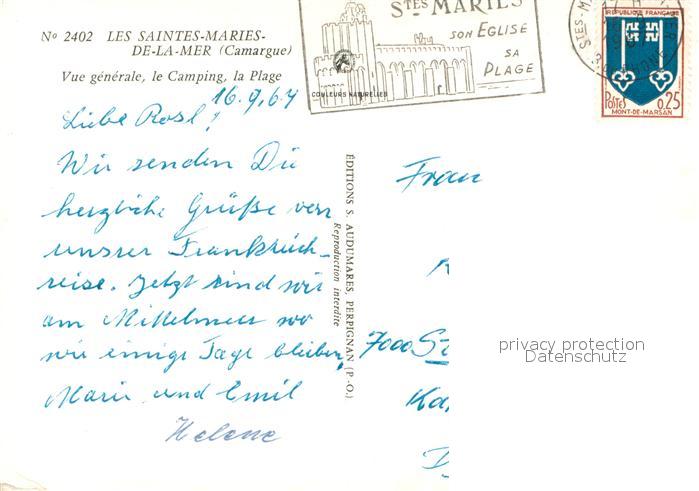 Nº 2402 LES SAINTES-MARIES-
DE-LA-MER (Camargue)
Vue générale, le Camping, la Plage
STES MARIES
SON EGLISE
SA
PLAGE
COULEURS NATURELLES
REPUBLIQUE FRANÇAISE
POSTES 0,25
MONT-DE-MARSAN
16.9.67
Liebe Rosl!
Wir senden Die
herzliche Grüße von
unsrer Frankreich-
reise. Jetzt sind wir
am Mittelmeer wo
wir einige Tage bleiben,
Marie und Emil
Helene
ÉDITIONS S. AUDUMARES, PERPIGNAN (P.-O.)
Reproduction interdite
Frau
7000 St
Ka
privacy protection
Datenschutz